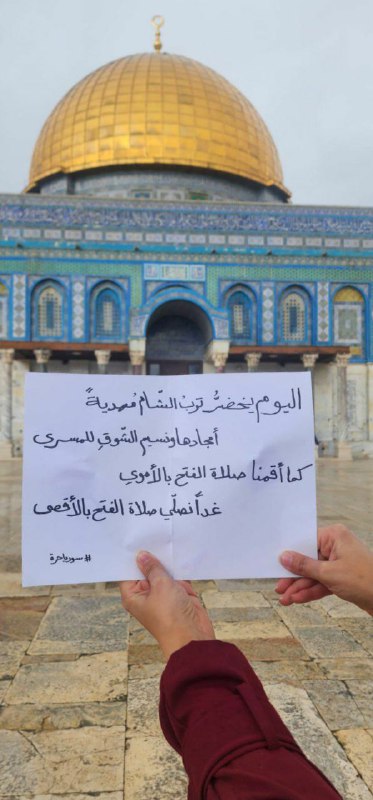 اليوم يخضرُّ تربُ الشّام مُهديةً
أمجادها ونسيم الشّوقِ للمسرى
كما أقمنا صلاة الفتح بالأموي
غداً نصلّي صلاة الفتح بالأقصى
#سوريا حرة